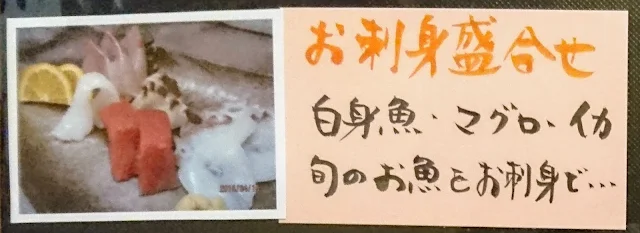 お刺身盛合せ
白身魚・マグロ・イカ
旬のお魚をお刺身で…